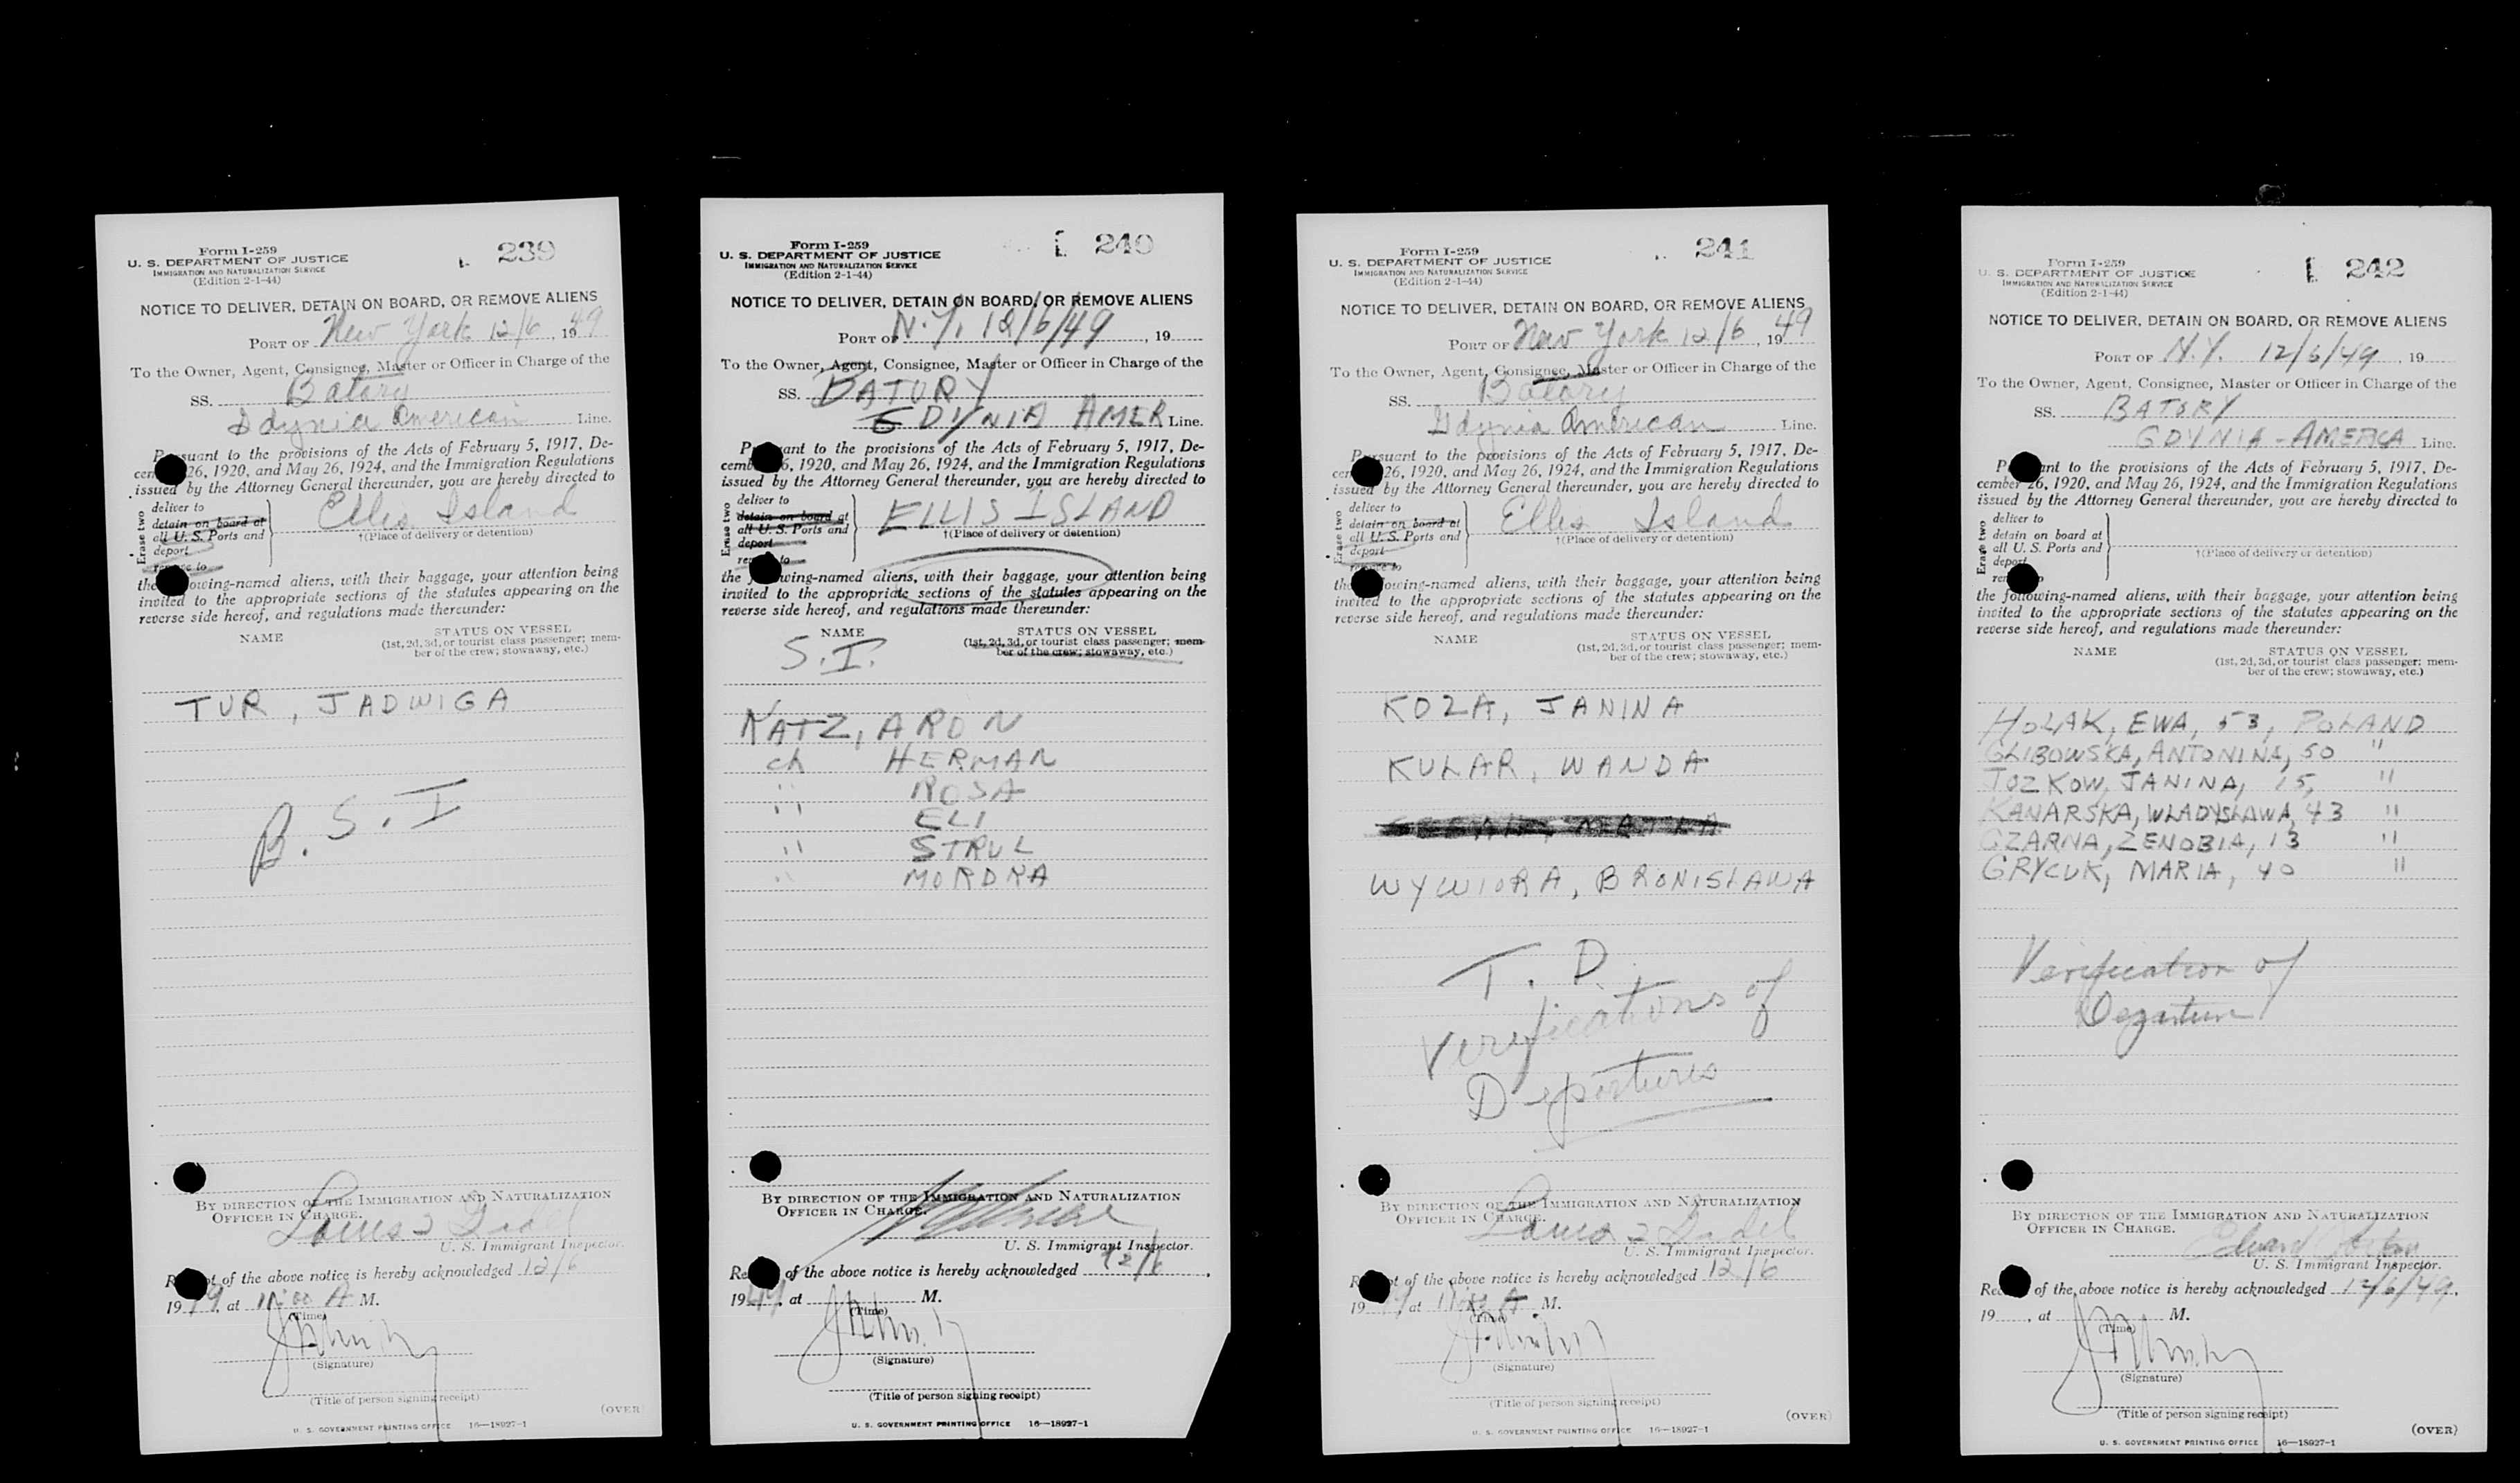 Form I-259
U. S. DEPARTMENT OF JUSTICE
IMMIGRATION AND NATURALIZATION SERVICE
(Edition 2-1-44)
239
NOTICE TO DELIVER, DETAIN ON BOARD, OR REMOVE ALIENS
PORT OF New York 12/6, 1949
To the Owner, Agent, Consignee, Master or Officer in Charge of the
SS. Batory
Gdynia American Line.
Pursuant to the provisions of the Acts of February 5, 1917, De-
cem 26, 1920, and May 26, 1924, and the Immigration Regulations
issued by the Attorney General thereunder, you are hereby directed to
Erase two
deliver to
detain on board at
all U. S. Ports and
deport
remove to
Ellis Island
†(Place of delivery or detention)
the following-named aliens, with their baggage, your attention being
invited to the appropriate sections of the statutes appearing on the
reverse side hereof, and regulations made thereunder:
NAME
STATUS ON VESSEL
(1st, 2d, 3d, or tourist class passenger; mem-
ber of the crew; stowaway, etc.)
TUR, JADWIGA
B.S.I
BY DIRECTION OF THE IMMIGRATION AND NATURALIZATION
OFFICER IN CHARGE.
Louis
U. S. Immigrant Inspector.
Receipt of the above notice is hereby acknowledged 12/6
1949, at 11:00 A M.
(Time)
(Signature)
(Title of person signing receipt)
(OVER)
U. S. GOVERNMENT PRINTING OFFICE 16—18927-1
Form I-259
U. S. DEPARTMENT OF JUSTICE
IMMIGRATION AND NATURALIZATION SERVICE
(Edition 2-1-44)
240
NOTICE TO DELIVER, DETAIN ON BOARD, OR REMOVE ALIENS
PORT OF N.Y. 12/6/49, 19
To the Owner, Agent, Consignee, Master or Officer in Charge of the
SS. BATORY
GDYNIA AMER Line.
Pursuant to the provisions of the Acts of February 5, 1917, De-
cember 26, 1920, and May 26, 1924, and the Immigration Regulations
issued by the Attorney General thereunder, you are hereby directed to
Erase two
deliver to
detain on board at
all U. S. Ports and
deport
remove to
ELLIS ISLAND
†(Place of delivery or detention)
the following-named aliens, with their baggage, your attention being
invited to the appropriate sections of the statutes appearing on the
reverse side hereof, and regulations made thereunder:
NAME
STATUS ON VESSEL
(1st, 2d, 3d, or tourist class passenger; mem-
ber of the crew; stowaway, etc.)
S.I.
KATZ, ARON
ch HERMAN
" ROSA
" ELI
" STRUL
" MORDKA
BY DIRECTION OF THE IMMIGRATION AND NATURALIZATION
OFFICER IN CHARGE.
U. S. Immigrant Inspector.
Receipt of the above notice is hereby acknowledged 12/6,
1949, at M.
(Time)
(Signature)
(Title of person signing receipt)
U. S. GOVERNMENT PRINTING OFFICE 16—18927-1
Form I-259
U. S. DEPARTMENT OF JUSTICE
IMMIGRATION AND NATURALIZATION SERVICE
(Edition 2-1-44)
241
NOTICE TO DELIVER, DETAIN ON BOARD, OR REMOVE ALIENS
PORT OF New York 12/6, 1949
To the Owner, Agent, Consignee, Master or Officer in Charge of the
SS. Batory
Gdynia American Line.
Pursuant to the provisions of the Acts of February 5, 1917, De-
cember 26, 1920, and May 26, 1924, and the Immigration Regulations
issued by the Attorney General thereunder, you are hereby directed to
Erase two
deliver to
detain on board at
all U. S. Ports and
deport
remove to
Ellis Island
†(Place of delivery or detention)
the following-named aliens, with their baggage, your attention being
invited to the appropriate sections of the statutes appearing on the
reverse side hereof, and regulations made thereunder:
NAME
STATUS ON VESSEL
(1st, 2d, 3d, or tourist class passenger; mem-
ber of the crew; stowaway, etc.)
KOZA, JANINA
KULAR, WANDA
WYWIORA, BRONISŁAWA
T. D.
Verifications of
Departures
BY DIRECTION OF THE IMMIGRATION AND NATURALIZATION
OFFICER IN CHARGE.
Louis
U. S. Immigrant Inspector.
Receipt of the above notice is hereby acknowledged 12/6
1949 at A M.
(Time)
(Signature)
(Title of person signing receipt)
(OVER)
U. S. GOVERNMENT PRINTING OFFICE 16—18927-1
Form I-259
U. S. DEPARTMENT OF JUSTICE
IMMIGRATION AND NATURALIZATION SERVICE
(Edition 2-1-44)
242
NOTICE TO DELIVER, DETAIN ON BOARD, OR REMOVE ALIENS
PORT OF N.Y. 12/6/49, 19
To the Owner, Agent, Consignee, Master or Officer in Charge of the
SS. BATORY
GDYNIA-AMERICA Line.
Pursuant to the provisions of the Acts of February 5, 1917, De-
cember 26, 1920, and May 26, 1924, and the Immigration Regulations
issued by the Attorney General thereunder, you are hereby directed to
Erase two
deliver to
detain on board at
all U. S. Ports and
deport
remove to
†(Place of delivery or detention)
the following-named aliens, with their baggage, your attention being
invited to the appropriate sections of the statutes appearing on the
reverse side hereof, and regulations made thereunder:
NAME
STATUS ON VESSEL
(1st, 2d, 3d, or tourist class passenger; mem-
ber of the crew; stowaway, etc.)
HOLAK, EWA, 53, POLAND
GLIBOWSKA, ANTONINA, 50 "
JOZKOW, JANINA, 15, "
KANARSKA, WŁADYSŁAWA, 43 "
CZARNA, ZENOBIA, 13 "
GRYCUK, MARIA, 40 "
Verification of
Departure
BY DIRECTION OF THE IMMIGRATION AND NATURALIZATION
OFFICER IN CHARGE.
Edward
U. S. Immigrant Inspector.
Receipt of the above notice is hereby acknowledged 12/6/49,
19, at M.
(Time)
(Signature)
(Title of person signing receipt)
(OVER)
U. S. GOVERNMENT PRINTING OFFICE 16—18927-1